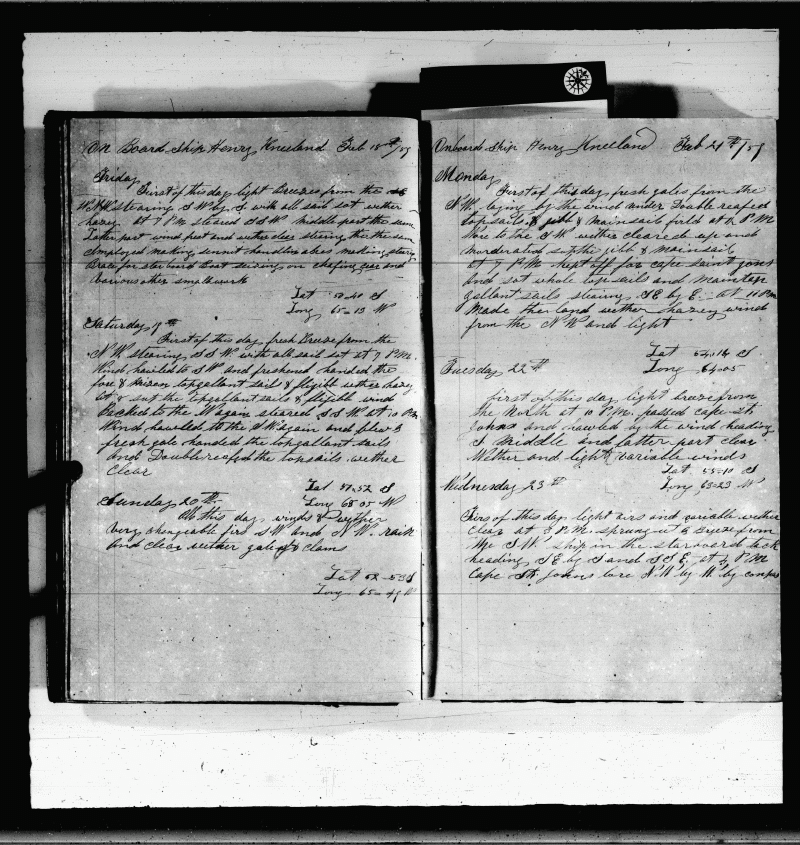 On Board Ship Henry Kneeland Feb 18th/59
Friday
First of this day light breezes from the
W.N.W. stearing S W by S with all sail sot wether
hazy at 7 P.M. steared S S W middle part the same
Latter part wind fresh and wether clear stearing the same
Employed making sennit handling making
Brace for starboard Boat seising on chafing gear and
Various other small work
Lat 50-40 S
Long 65-13 W
Saturday 19th
First of this day fresh Breeze from the
N.W. stearing S S W with all sail sot at 7 P.M.
Wind hauled to S W and freshened handed the
fore & mizon topgallant sail & flyjibb wether hazy
at 8 sot the topgallant sails & flyjibb wind
Backed to the W again steared S S W at 10 P.M.
Wind hawled to the S W again and blew a
fresh gale handed the topgallant sails
and Doublereafed the topsails wether
Clear
Lat 51-52 S
Long 68-05 W
Sunday 20th
All this day winds & wether
very changeable firs S W and N W rain
and clear wether gales & clams
Lat 52-53 S
Long 65-49 W
Onboard Ship Henry Kneeland Feb 21th/59
Monday
First of this day fresh gales from the
N.W. laying by the wind under Double reafed
topsails & jibb & mainsail furld at 2 P.M.
Wore to the S W wether cleared up and
moderated sot the jibb & mainsail
at 7 P.M. kept off for cape saint Jons
and sot whole topsails and maintop
gallant sails stearing S E by E at 11 P.M.
Made the land wether hazey wind
from the N W and light
Lat 54-14 S
Long 64-05
Tuesday 22th
first of this day light breeze from
the North at 10 P.M. passed cape St
Johns and hawled by the wind heading
S Middle and latter part clear
Wether and light variable winds
Lat 55-10 S
Long 63-23 W
Wednesday 23th
Firs of this day light airs and variable wether
clear at 3 P.M. sprung up a Breeze from
the S.W. ship in the starboard tack
heading S E by S and S S E at 4 P.M.
Cape St Johns bore N W by W by compas